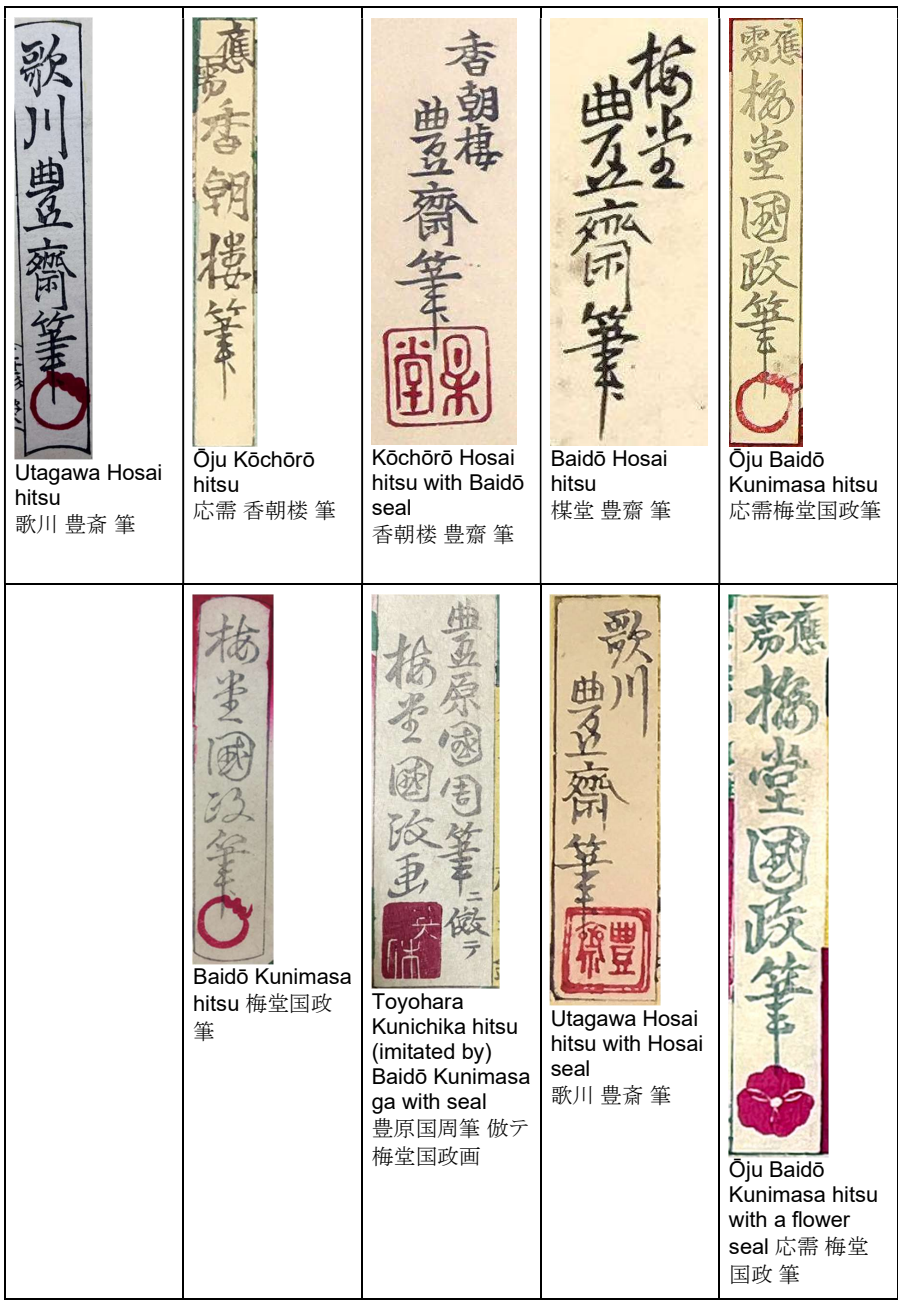 歌川豊齋筆
Utagawa Hosai
hitsu
歌川 豊斎 筆
應需
香朝樓筆
Ōju Kōchōrō
hitsu
応需 香朝楼 筆
香朝樓
豊齋筆
呆堂
Kōchōrō Hosai
hitsu with Baidō
seal
香朝楼 豊齋 筆
梅堂
豊齋筆
Baidō Hosai
hitsu
楳堂 豊齋 筆
應需
梅堂國政筆
Ōju Baidō
Kunimasa hitsu
応需梅堂国政筆
梅堂國政筆
Baidō Kunimasa
hitsu 梅堂国政
筆
豊原國周筆ニ倣テ
梅堂國政画
Toyohara
Kunichika hitsu
(imitated by)
Baidō Kunimasa
ga with seal
豊原国周筆 倣テ
梅堂国政画
歌川
豊齋筆
豊齋
Utagawa Hosai
hitsu with Hosai
seal
歌川 豊斎 筆
應需
梅堂國政筆
Ōju Baidō
Kunimasa hitsu
with a flower
seal 応需 梅堂
国政 筆